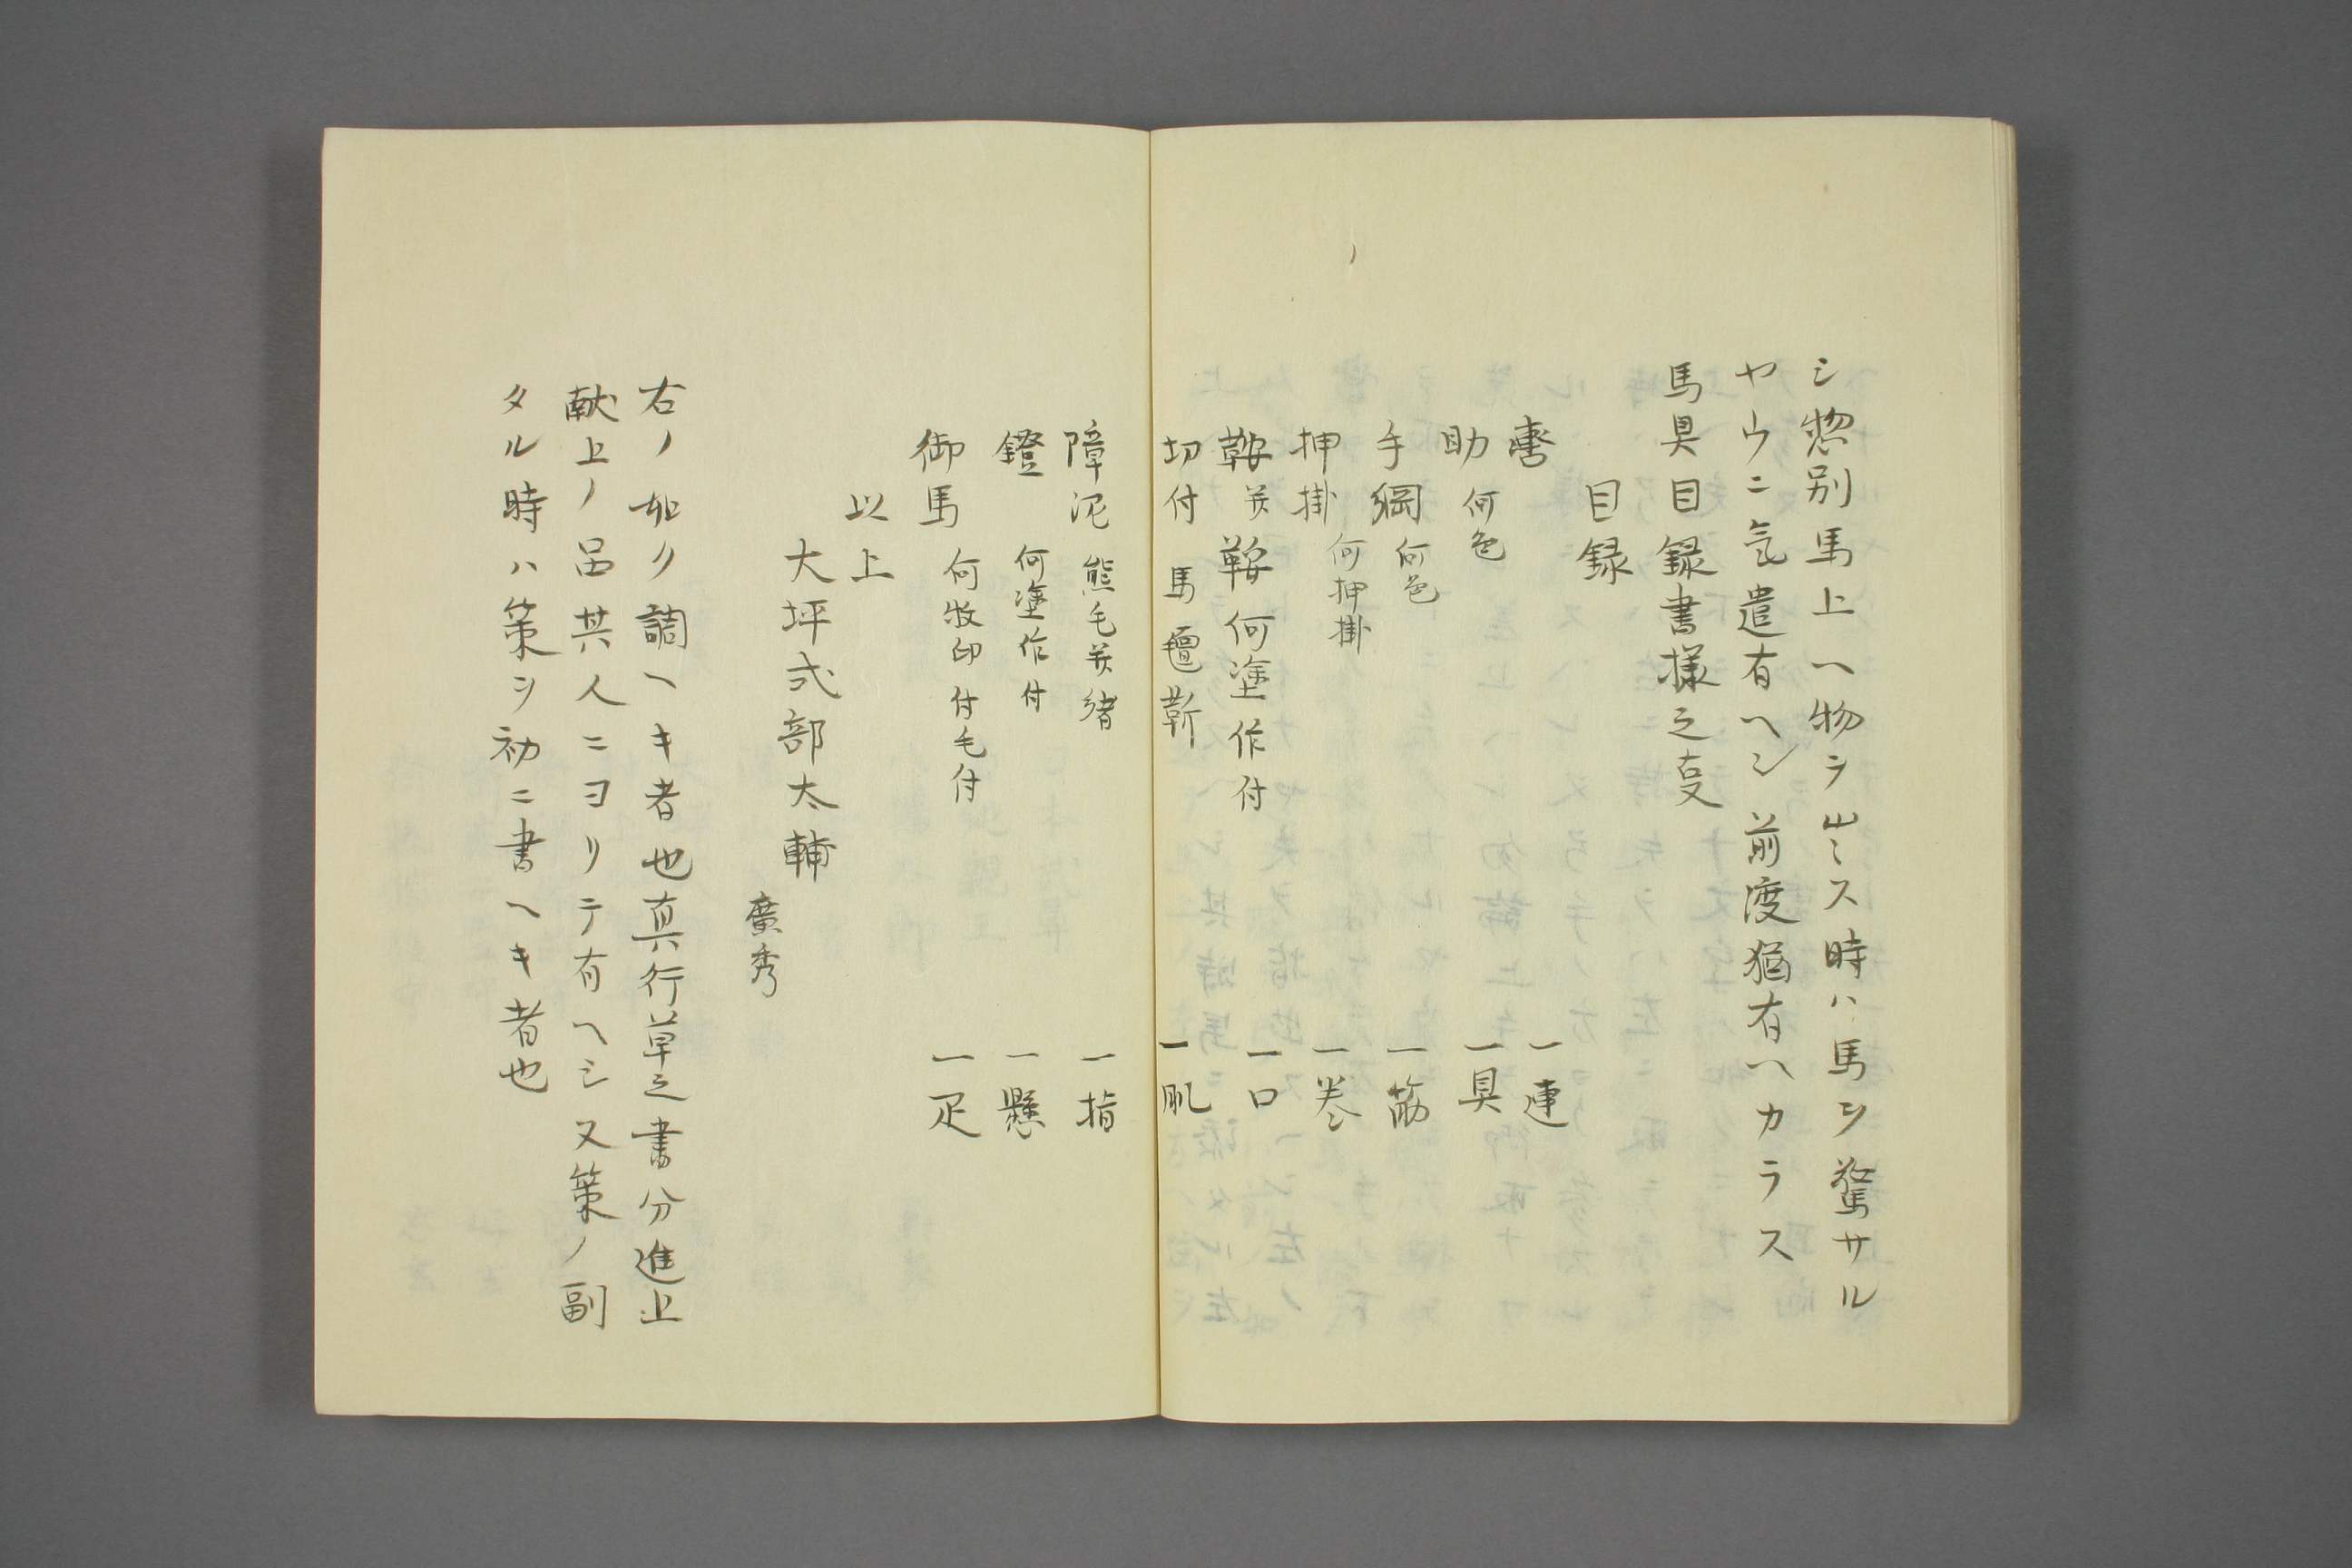 シ惣別馬上ヘ物ヲ出ス時ハ馬ヲ驚サル
ヤウニ気遣有ヘシ前度猶有ヘカラス
馬具目録書様之㕝
目録
轡 一連
助 何色 一具
手綱 何色 一筋
押掛 何押掛 一巻
鞍 并鞍何塗作付 一口
切付 馬氊靳 一肌
障泥 熊毛并緒 一指
鐙 何塗作付 一懸
御馬 何牧印付毛付 一疋
以上
大坪式部太輔
廣秀
右ノ如ク調ヘキ者也真行草之書分進上
献上ノ品其人ニヨリテ有ヘシ又策ノ副
タル時ハ策ヲ初ニ書ヘキ者也